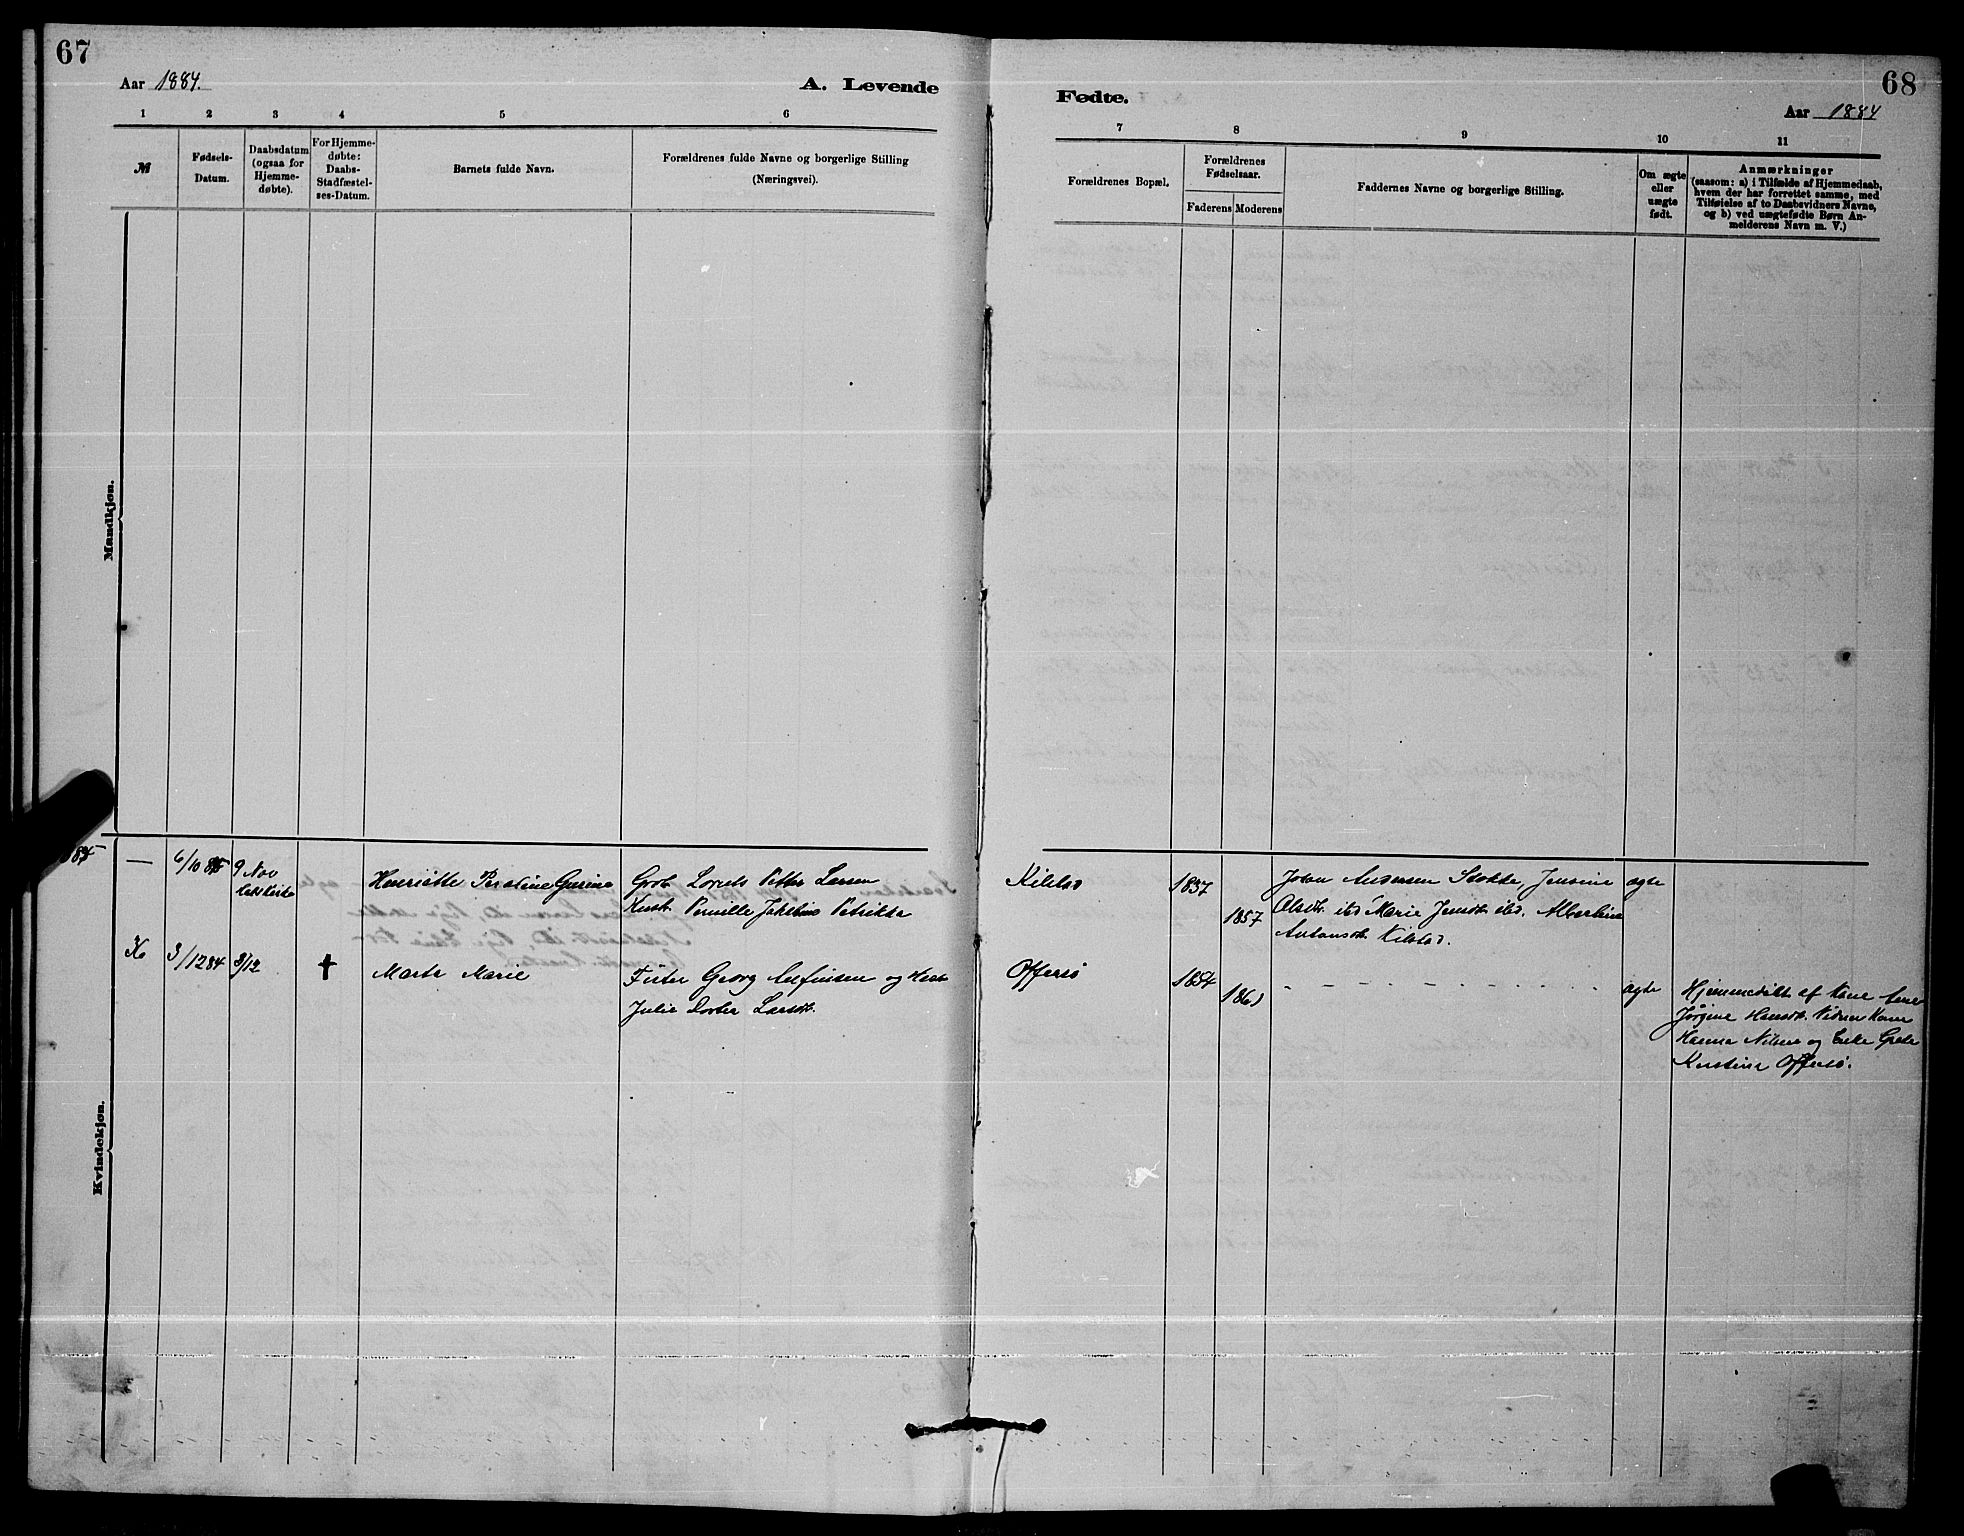 67
68
Aar 1884.
A. Levende
Fødte.
Aar 1884
1 2 3 4 5 6
7 8 9 10 11
Fødsels-
Datum.
Daabsdatum
(ogsaa for
Hjemme-
døbte).
For Hjemme-
døbte:
Daabs-
Stadfæstel-
ses-Datum.
Barnets fulde Navn.
Forældrenes fulde Navne og borgerlige Stilling
(Næringsvei).
Forældrenes Bopæl.
Forældrenes
Fødselsaar.
Faderens Moderens
Faddernes Navne og borgerlige Stilling.
Om ægte
eller
uægte
født.
Anmærkninger
(saasom: a) i Tilfælde af Hjemmedaab,
hvem der har forrettet samme, med
Tilføielse af to Daabsvidners Navne,
og b) ved uægtefødte Børn An-
melderens Navn m. V.)
Mandkjøn.
Kvindekjøn.
— 6/10 9 Nov
Henriette Gurine
Petter Larsen
Pernille Petrikke
Kilstad
1857
1857
Johan Andersen Stokke, Jensine
Olsdt. ibd Marie Jensdt. ibd. Albertine
Antonsdt. Kilstad.
ægte
3/12 84 3/12 †
Marta Marie
Fisker Georg og Hust
Julie Dortea Larsdt.
Offersø
1854
1861
- - - - - - - - - -
ægte
Hjemmedøbt af Kone
Jørgine Hansdt. Vidner Kone
Hanna Nilsen og Enke Grete
Kristine Offersø.